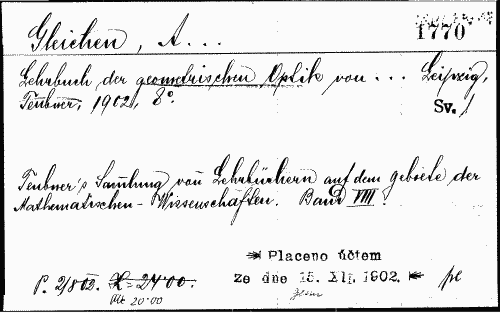 Gleichen, A...
1770
Lehrbuch der geometrischen Optik von ... Leipzig,
Teubner, 1902, 8°.
Sv. 1
Teubner's Samlung von Lehrbüchern auf dem gebiete der
Mathematischen - Wissenschaften. Band VIII.
Placeno účtem
ze dne 15. XII. 1902.
P. 2/8 02. K = 24·00.
Mk 20·00